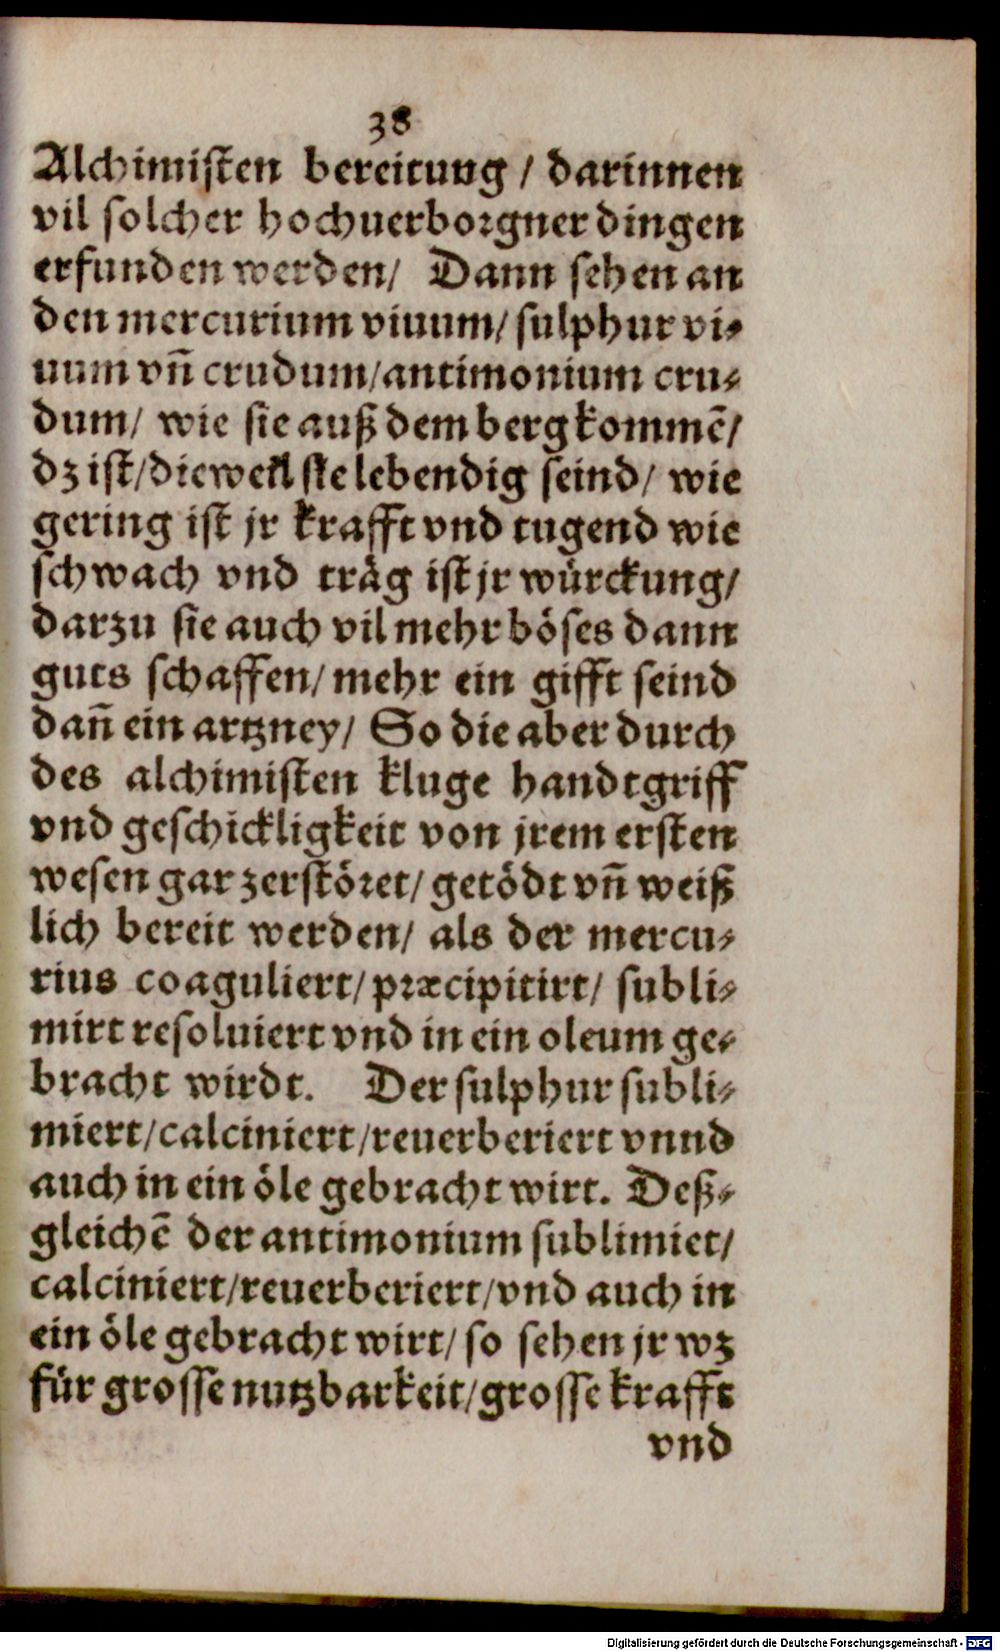 38
Alchimisten bereitung / darinnen
vil solcher hochuerborgner dingen
erfunden werden / Dann sehen an
den mercurium viuum / sulphur vi⸗
uum vñ crudum / antimonium cru⸗
dum / wie sie auß dem berg kommẽ /
dz ist / dieweil sie lebendig seind / wie
gering ist jr krafft vnd tugend wie
schwach vnd träg ist jr würckung /
darzu sie auch vil mehr böses dann
guts schaffen / mehr ein gifft seind
dañ ein artzney / So die aber durch
des alchimisten kluge handtgriff
vnd geschickligkeit von jrem ersten
wesen gar zerstöret / getödt vñ weiß
lich bereit werden / als der mercu⸗
rius coaguliert / præcipitirt / subli⸗
mirt resoluiert vnd in ein oleum ge⸗
bracht wirdt. Der sulphur subli⸗
miert / calciniert / reuerberiert vnnd
auch in ein öle gebracht wirt. Deß⸗
gleichẽ der antimonium sublimiet /
calciniert / reuerberiert / vnd auch in
ein öle gebracht wirt / so sehen jr wz
für grosse nutzbarkeit / grosse krafft
vnd
Digitalisierung gefördert durch die Deutsche Forschungsgemeinschaft - DFG